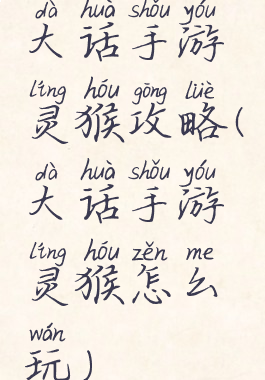 dà huà shǒu yóu
大话手游
líng hóu gōng lüè
灵猴攻略(
dà huà shǒu yóu
大话手游
líng hóu zěn me
灵猴怎么
wán
玩)